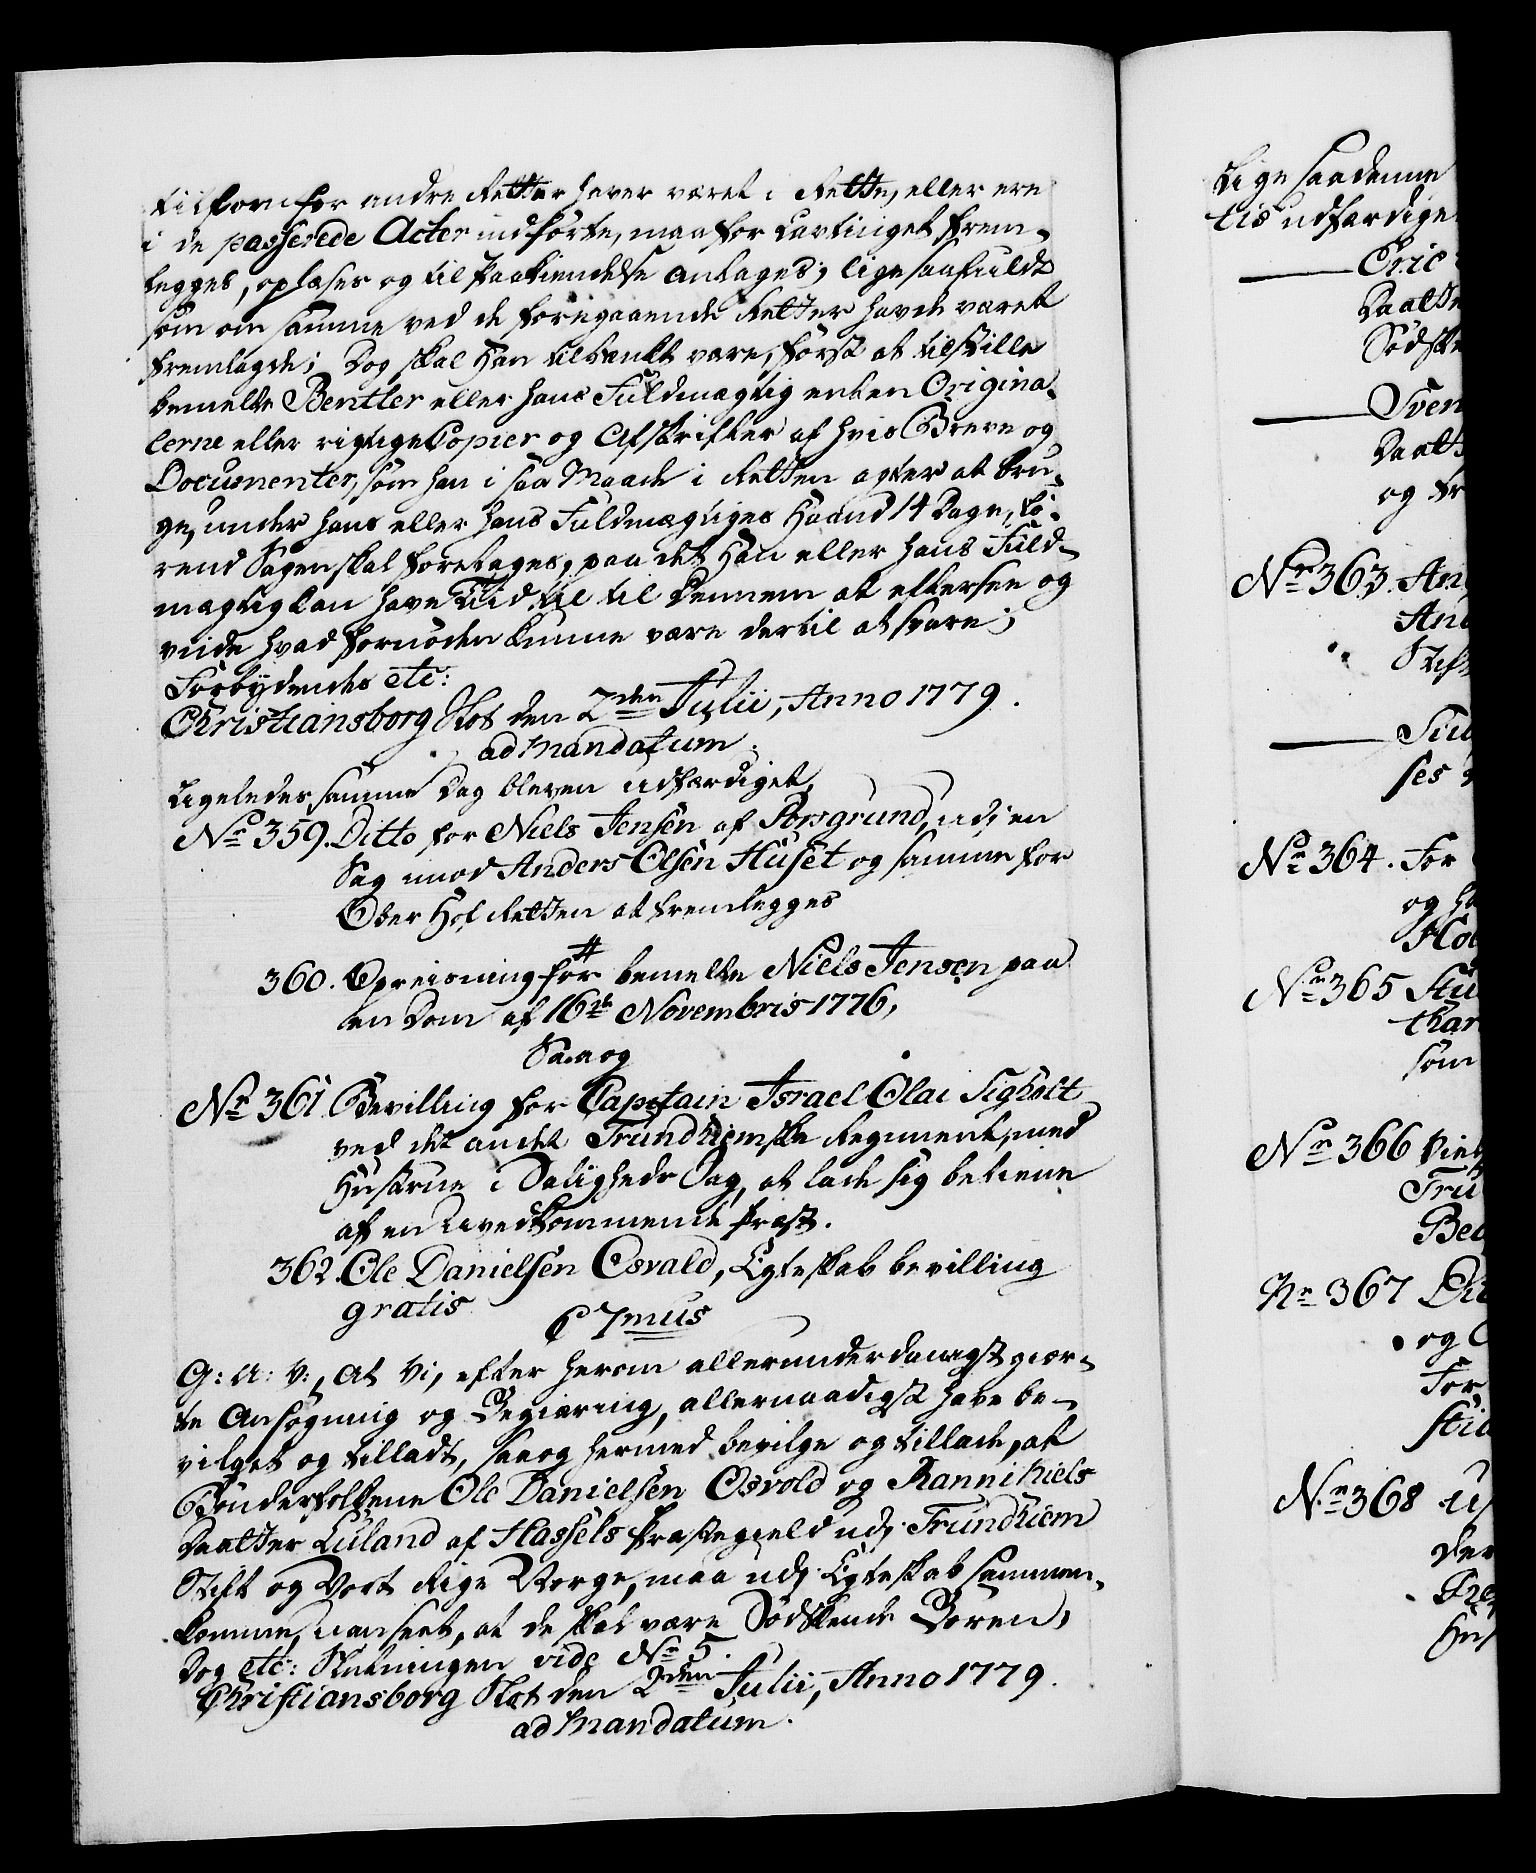 tilforn for andre Retter haver været i Rette, eller ere
i de passerede Acter indførte, maa for Lavtinget frem-
legges, oplæses og til Paakiendelse antages; lige saafuldt
som om samme ved de foregaaende Retter havde været
fremlagde; Dog skal Han tiltænkt være, først at tilstille
bemelte Bentler eller hans Fuldmægtig enten Origina-
lerne eller rigtige Copier og Afskrifter af hvis Breve og
Documenter, som han i saa Maade i Retten agter at bru-
ge, under hans eller hans Fuldmægtiges Haand 14 Dage, fø-
rend Sagen skal foretages, paa det Han eller hans Fuld-
mægtig kan have Tiid til til Dennem at eftersee og
viide hvad fornøden kunne være dertil at svare;
Forbydendes etc:
Christiansborg Slot den 2den Julii, Anno 1779.
ad Mandatum.
Ligeledes samme Dag bleven udfærdiget,
No 359. Ditto for Niels Jensen af Porsgrund, udj en
Sag imod Anders Olsen Huset og samme for
Ober Hof Retten at fremlegges
360. Opreisning for bemelte Niels Jensen paa
en Dom af 16de Novembris 1776,
Saa og
Nr 361 Bevilling for Captain Israel Olai Sigholt
ved det andet Trundhiemske Regiment, med
Hustrue i Saligheds Sag, at lade sig betiene
af en Uvedkommende Præst.
362. Ole Danielsen Osvald, Egteskab bevilling
gratis
C 7mus
G: A: V:, At Vi, efter herom allerunderdanigst giør-
te Ansøgning og Begiæring, allernaadigst have be-
vilget og tilladt, saa og hermed bevilge og tillade, at
Bønderfolkene Ole Danielsen Osvold og Ranni Niels
Daatter Luland af Hassels Præstegield udj Trundhiem
Stift og Vort Rige Norge, maa udj Egteskab sammen-
komme, uanseet, at de skal være Sødskende Børen,
Dog etc: Slutningen vide No 5.
Christiansborg Slot den 2den Julii, Anno 1779.
ad Mandatum.
Lige saa denne
tis udfærdige
Eric
Daatte
Sødske
Sven
Daatt
og
Nr 363. An
And
Stift
ses
No 364. For
og
No 365
som
No 366
Tru
Nr 367
og
For
No 368